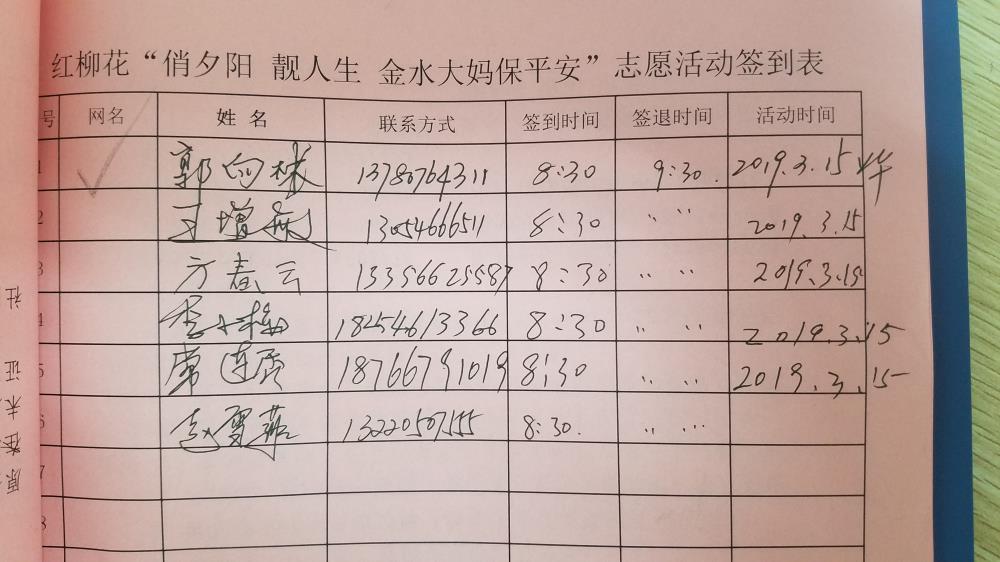 红柳花“俏夕阳 靓人生 金水大妈保平安”志愿活动签到表
号 网名 姓 名 联系方式 签到时间 签退时间 活动时间
1 郭向林 13780764311 8:30 9:30. 2019.3.15
2 王增 13054666511 8:30 〃 〃 2019.3.15
3 方春云 13356625587 8:30 〃 〃 2019.3.15
4 李小梅 18254613366 8:30 〃 〃 2019.3.15
5 常连 18766791019 8:30 〃 〃 2019.3.15
6 赵雪茹 13220507555 8:30. 〃 〃
7
8
社
证
未
在
原